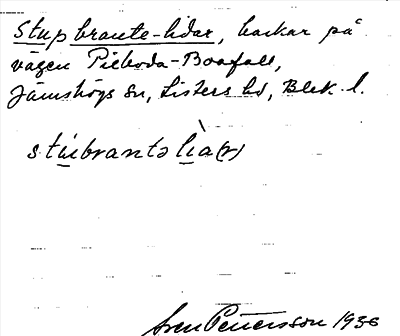 Stupbrante-lidar, backar på
vägen Pieboda-Boafall,
Jämshögs sn, Listers hd, Blek. l.
stu̲brantə lì̲a(r)
Sven Pettersson 1936